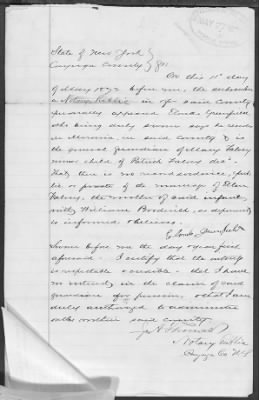 State of New York
Cayuga County } ss.
On this 11th day
of May 1872 before me, the subscriber
a Notary Public in & for said County
personally appeared Elmer Greenfield
who being duly sworn says he resides
in Moravia in said County & is
the general guardian of Mary Fahey
minor child of Patrick Fahey decd
That there is no record evidence, public
or private of the marriage of Ellen
Fahey, the mother of said infant
with William
is informed & believes.
Sworn before me the day & year first
aforesaid - I certify that the
is respectable & credible - that I have
no interest in the claim of said
guardian for pension, & that I am
duly authorized to administer
oaths within said county.
Notary Public
Cayuga Co N.Y.